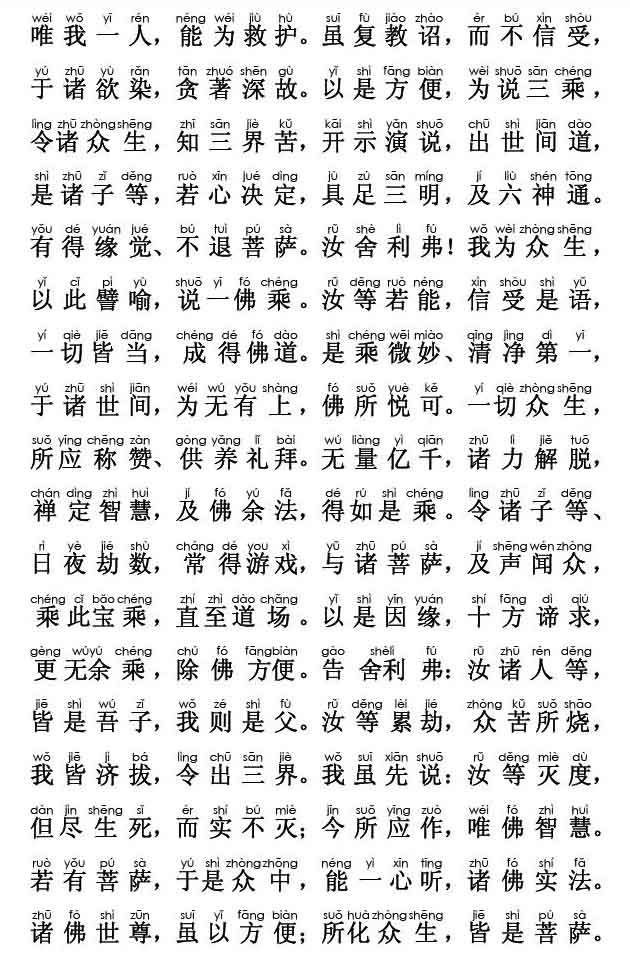 wéi wǒ yī rén néng wéi jiù hù suī fù jiào zhào ér bú xìn shòu
唯我一人，能为救护。虽复教诏，而不信受，
yú zhū yù rǎn tān zhuó shēn gù yǐ shì fāng biàn wèi shuō sān chéng
于诸欲染，贪著深故。以是方便，为说三乘，
lìng zhū zhòng shēng zhī sān jiè kǔ kāi shì yǎn shuō chū shì jiān dào
令诸众生，知三界苦，开示演说，出世间道，
shì zhū zǐ děng ruò xīn jué dìng jù zú sān míng jí liù shén tōng
是诸子等，若心决定，具足三明，及六神通。
yǒu dé yuán jué bú tuì pú sà rǔ shè lì fú wǒ wèi zhòng shēng
有得缘觉、不退菩萨。汝舍利弗！我为众生，
yǐ cǐ pì yù shuō yī fó chéng rǔ děng ruò néng xìn shòu shì yǔ
以此譬喻，说一佛乘。汝等若能，信受是语，
yí qiè jiē dāng chéng dé fó dào shì chéng wēi miào qīng jìng dì yī
一切皆当，成得佛道。是乘微妙、清净第一，
yú zhū shì jiān wéi wú yǒu shàng fó suǒ yuè kě yí qiè zhòng shēng
于诸世间，为无有上，佛所悦可。一切众生，
suǒ yīng chēng zàn gòng yǎng lǐ bài wú liàng yì qiān zhū lì jiě tuō
所应称赞、供养礼拜。无量亿千，诸力解脱，
chán dìng zhì huì jí fó yú fǎ dé rú shì chéng lìng zhū zǐ děng
禅定智慧，及佛余法，得如是乘。令诸子等、
rì yè jié shù cháng dé you xì yǔ zhū pú sà jí shēng wén zhòng
日夜劫数，常得游戏，与诸菩萨，及声闻众，
chéng cǐ bǎo chéng zhí zhì dào chǎng yǐ shì yīn yuán shí fāng dì qiú
乘此宝乘，直至道场。以是因缘，十方谛求，
gèng wú yú chéng chú fó fāng biàn gào shè lì fú rǔ zhū rén děng
更无余乘，除佛方便。告舍利弗：汝诸人等，
jiē shì wú zǐ wǒ zé shì fù rǔ děng lèi jié zhòng kǔ suǒ shāo
皆是吾子，我则是父。汝等累劫，众苦所烧，
wǒ jiē jì bá lìng chū sān jiè wǒ suī xiān shuō rǔ děng miè dù
我皆济拔，令出三界。我虽先说：汝等灭度，
dàn jìn shēng sǐ ér shí bú miè jīn suǒ yīng zuò wéi fó zhì huì
但尽生死，而实不灭；今所应作，唯佛智慧。
ruò yǒu pú sà yú shì zhòng zhōng néng yì xīn tīng zhū fó shí fǎ
若有菩萨，于是众中，能一心听，诸佛实法。
zhū fó shì zūn suī yǐ fāng biàn suǒ huà zhòng shēng jiē shì pú sà
诸佛世尊，虽以方便；所化众生，皆是菩萨。